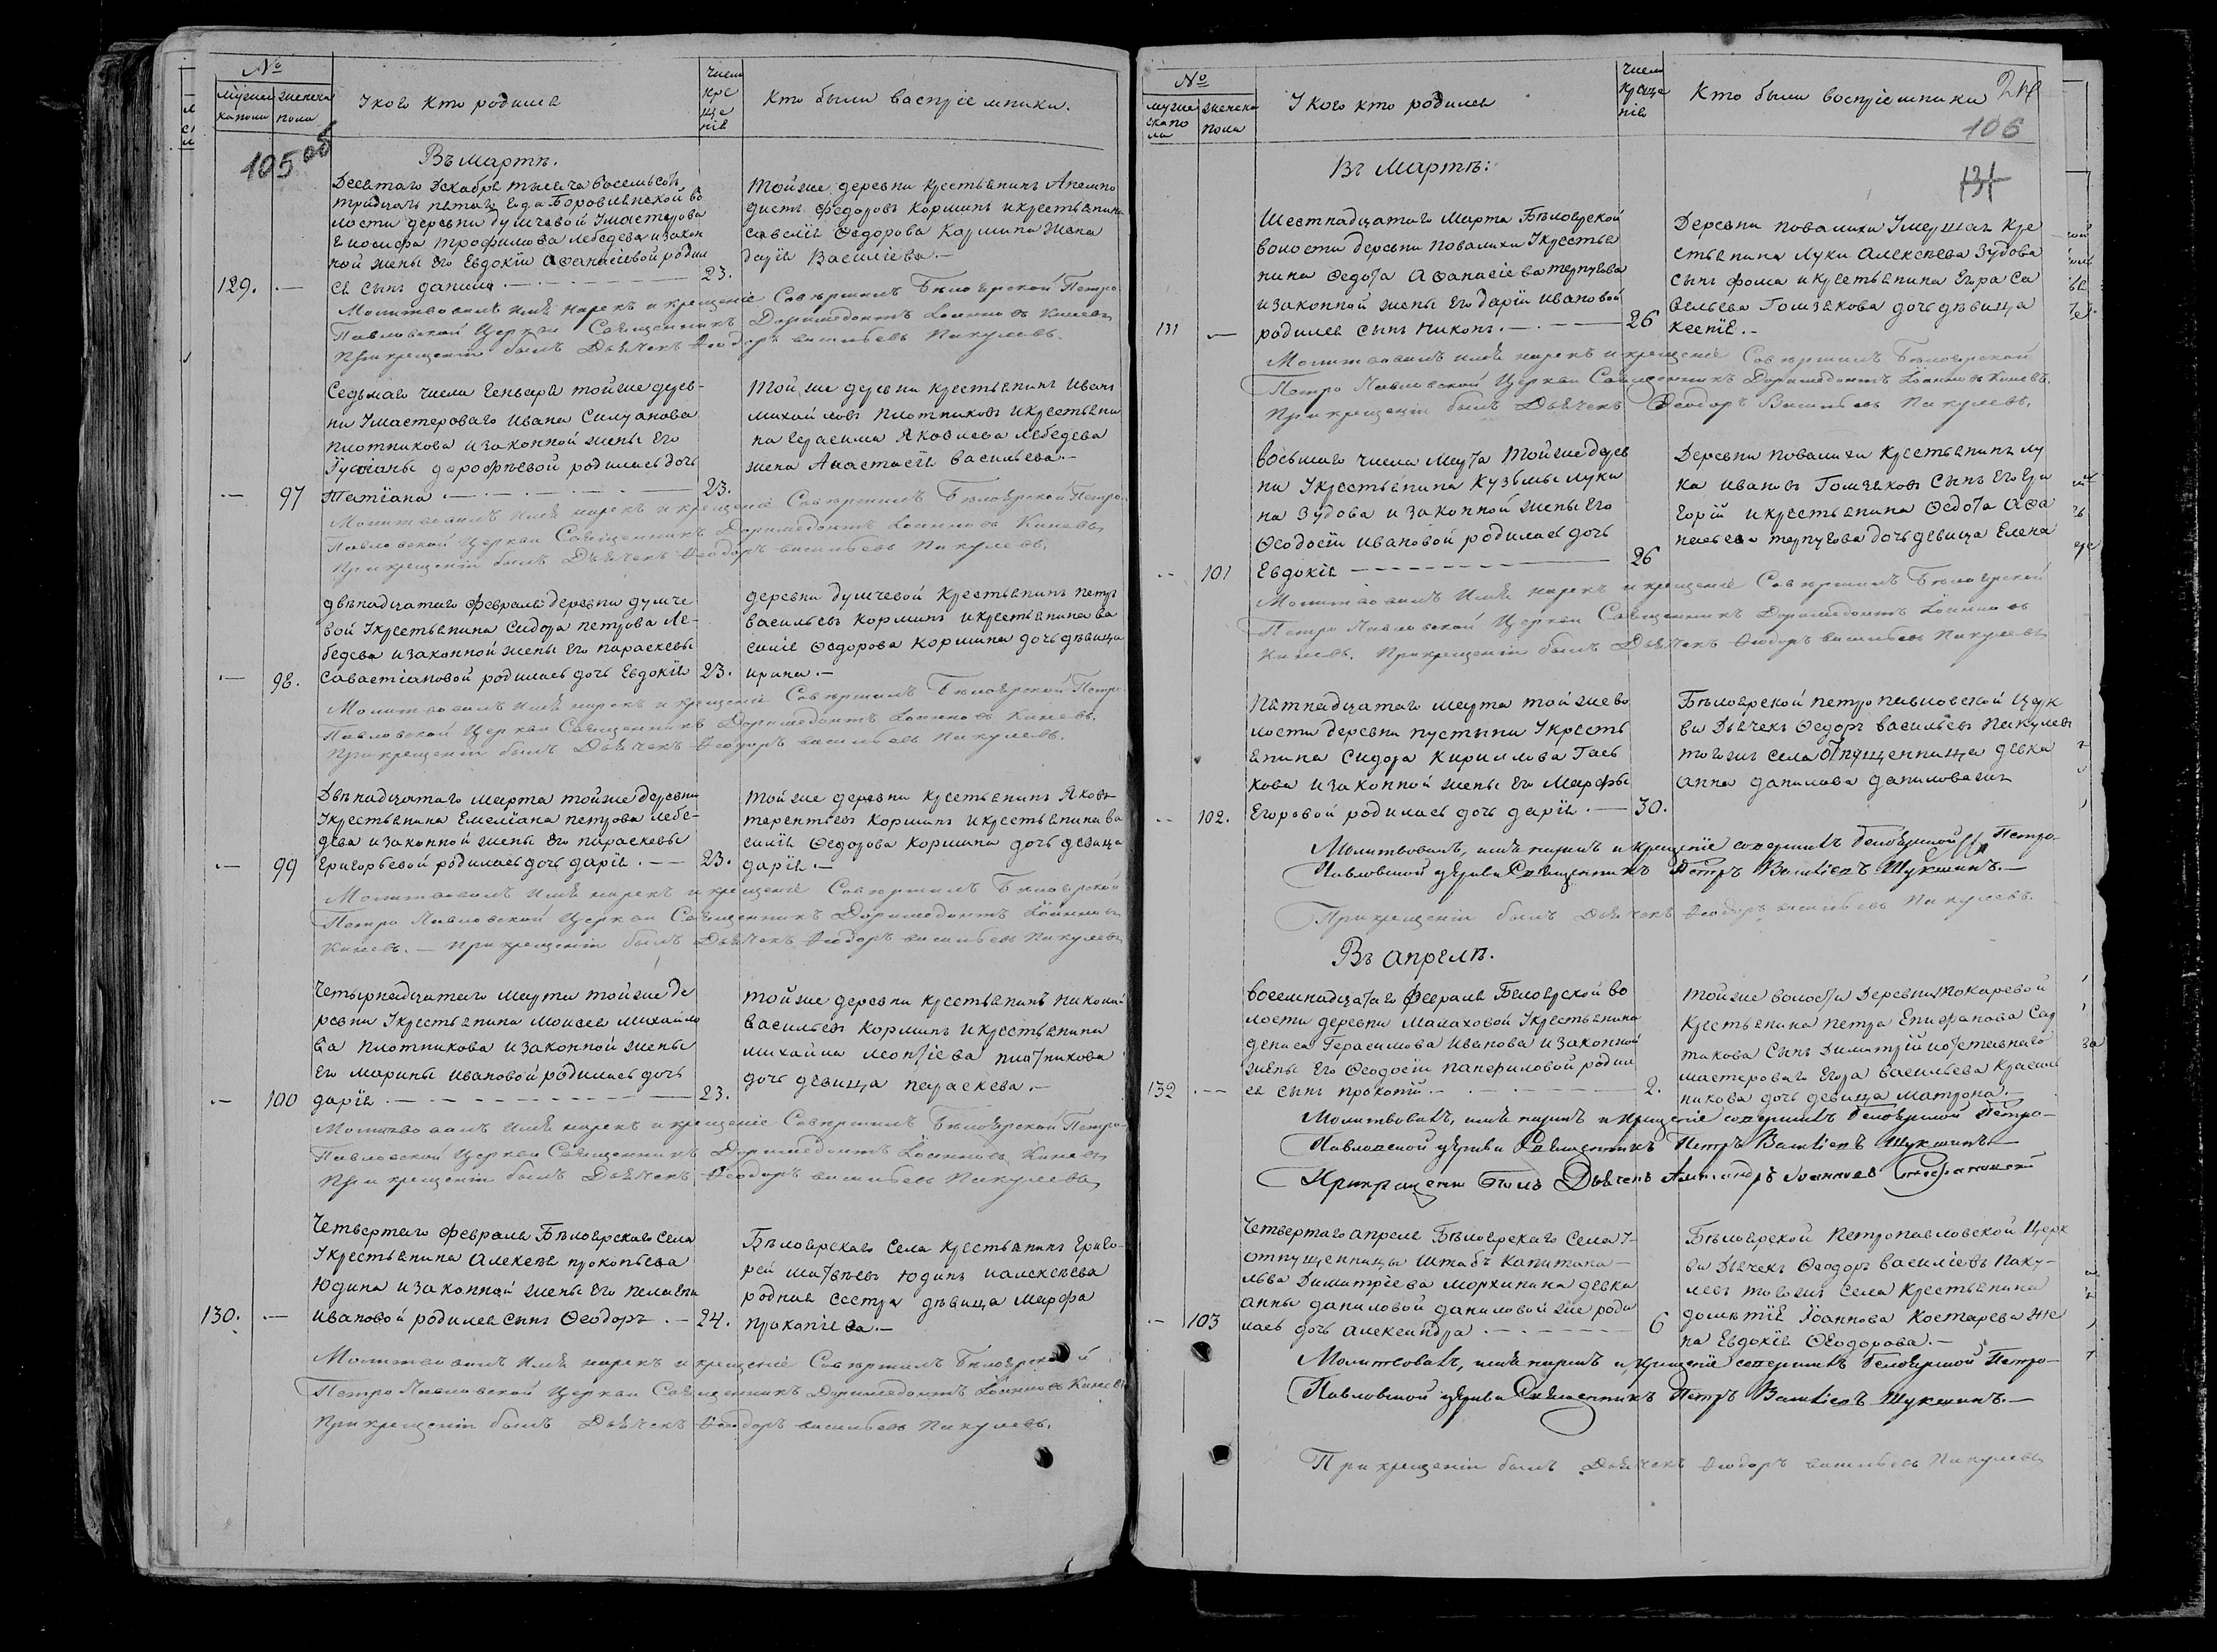 №
мужеска пола
женска пола
У кого кто родился
Число крещенія
Кто были воспріемники.
105 об
Въ Мартѣ.
Десятаго Декабря тысяча восемьсотъ
тридцать пятаго года Боровлянской во
лости деревни думчевой Умастерова
го иосифа трофимова лебедева изакон
ной жены его Евдокіи Афанасіевой родил
129. — ся сынъ данило. — 23.
Тойже деревни крестьянинъ
федоровъ Коршинъ икрестьянина
савелія Ѳедорова Коршина жена
дарія Василіева. —
Молитвовалъ имя нарекъ и крещеніе Совершилъ Бѣлоярской Петро
Павловской Церкви Священникъ Доримедонтъ Іоанновъ
При крещеніи былъ Дьячекъ Ѳеодоръ васильевъ Пикулевъ.
Седьмаго числа Генваря тойже дерев-
ни Умастероваго Ивана Силуанова
плотникова изаконной жены его
дорофѣевой родилась дочь
— 97 Татіана — 23.
Той же деревни крестьянинъ Иванъ
михайловъ плотниковъ икрестьяни
на герасима Яковлева лебедева
жена Анастасія васильева. —
Молитвовалъ имя нарекъ и крещеніе Совершилъ Бѣлоярской Петро-
Павловской Церкви Священникъ Доримедонтъ Іоанновъ
При крещеніи былъ Дьячекъ Ѳеодоръ васильевъ Пикулевъ.
двѣнадцатаго февраля деревни думче
вой Укрестьянина Сидора петрова Ле-
бедева изаконной жены его параскевы
— 98. Савастіановой родилась дочь Евдокія 23.
деревни думчевой Крестьянинъ петръ
васильевъ коршинъ икрестьянина ва
силія Ѳедорова коршина дочь дѣвица
ирина. —
Молитвовалъ имя нарекъ и крещеніе Совершилъ Бѣлоярской Петро
Павловской Церкви Священникъ Доримедонтъ Іоанновъ
При крещеніи былъ Дьячекъ Ѳеодоръ васильевъ Пикулевъ.
Двѣнадцатаго марта тойже деревни
Укрестьянина Емеліана петрова лебе-
дева изаконной жены его параскевы
— 99 Григорьевой родилась дочь дарія. — 23.
Той же деревни крестьянинъ Яковъ
терентьевъ Коршинъ икрестьянина ва
силія Ѳедорова Коршина дочь девица
дарія. —
Молитвовалъ имя нарекъ и крещеніе Совершилъ Бѣлоярской
Петро Павловской Церкви Священникъ Доримедонтъ Іоанновъ
При крещеніи былъ Дьячекъ Ѳеодоръ васильевъ Пикулевъ
Четырнадцатаго марта тойже де
ревни Укрестьянина Моисея михайло
ва плотникова изаконной жены
его Марины ивановой родилась дочь
— 100 дарія — 23.
тойже деревни крестьянинъ николай
васильевъ коршинъ икрестьянина
михайла леонтіева плотникова
дочь девица параскева. —
Молитвовалъ имя нарекъ и крещеніе Совершилъ Бѣлоярской Петро-
Павловской Церкви Священникъ Доримедонтъ Іоанновъ
При крещеніи былъ Дьячекъ Ѳеодоръ васильевъ Пикулевъ
Четвертаго февраля Бѣлоярскаго села
Укрестьянина Алексѣя прокопьева
Юдина изаконной жены его пелагеи
130. — ивановой родился сынъ Ѳеодоръ. — 24.
Бѣлоярскаго села крестьянинъ григо-
рей матвѣевъ Юдинъ иалексѣева
родная сестра дѣвица марфа
прокопіева. —
Молитвовалъ имя нарекъ и крещеніе Совершилъ Бѣлоярской
Петро Павловской Церкви Священникъ Доримедонтъ Іоанновъ
При крещеніи былъ Дьячекъ Ѳеодоръ васильевъ Пикулевъ.
№
мужеска пола
женска пола
У кого кто родился
Число крещенія
Кто были воспріемники
106
131
Въ Мартѣ:
Шестнадцатаго Марта Бѣлоярской
волости деревни повалихи Укрестья
нина Ѳедота Афанасіева терпугова
изаконной жены его дарьи ивановой
131 — родился сынъ никонъ. — 26
Деревни повалихи Умершаго кре
стьянина Луки Алексѣева Зудова
сынъ фома икрестьянина Егора Са
вельева Гомзякова дочь дѣвица
ксенія. —
Молитвовалъ имя нарекъ и крещеніе Совершилъ Бѣлоярской
Петро Павловской Церкви Священникъ Доримедонтъ Іоанновъ
При крещеніи былъ Дьячекъ Ѳеодоръ Васильевъ Пикулевъ.
Восьмаго числа Марта Тойже дерев
ни Укрестьянина Кузьмы луки
на Зудова изаконной жены его
Ѳеодосіи ивановой родилась дочь
— 101 Евдокія — 26
Деревни повалихи крестьянинъ лу
ка ивановъ Гомзяковъ сынъ его гри
горій икрестьянина Ѳедота Афа
насьева терпугова дочь девица Елена
Молитвовалъ имя нарекъ и крещеніе Совершилъ Бѣлоярской
Петро Павловской Церкви Священникъ Доримедонтъ Іоанновъ
При крещеніи былъ Дьячекъ Ѳеодоръ васильевъ Пикулевъ
Пятнадцатаго марта тойже во
лости деревни пустыни Укресть
янина Сидора Кириллова Гась
кова изаконной жены его Марфы
— 102. Егоровой родилась дочь дарія. — 30.
Бѣлоярской петропавловской Церк
ви Дьячекъ Ѳедоръ васильевъ Пикулевъ
тогожъ села Отпущенница девка
анна данилова
Молитвовалъ, имя нарекъ и крещеніе совершилъ Белоярской Петро-
Павловской церкви Священникъ Петръ Васильевъ Шукшинъ. —
При крещеніи былъ Дьячекъ Ѳеодоръ васильевъ Пикулевъ.
Въ апрелѣ.
восемнадцатаго февраля Белоярской во
лости деревни Малаховой Укрестьянина
дениса Герасимова иванова изаконной
жены его Ѳеодосіи панфиловой родил
132 — ся сынъ прокопій — 2.
тойже волости деревни токаревой
крестьянина петра Епифанова
сынъ Димитрій иотставнаго
мастероваго Егора васильева
дочь девица матрона. —
Молитвовалъ, имя нарекъ и крещеніе совершилъ Белоярской Петро-
Павловской церкви Священникъ Петръ Васильевъ Шукшинъ —
При крещеніи былъ Дьячекъ Александръ Іоанновъ
Четвертаго апреля Бѣлоярскаго села У-
отпущенницы штабъ капитана —
льва Димитріева девки
анны даниловой даниловой же роди
— 103 лась дочь александра. — 6
Бѣлоярской Петропавловской Церк
ви Дьячекъ Ѳеодоръ василіевъ Паку-
левъ тогожъ села крестьянина
Іоаннова Костарева же
на Евдокія Ѳеодорова. —
Молитвовалъ, имя нарекъ и крещеніе совершилъ Белоярской Петро-
Павловской церкви Священникъ Петръ Васильевъ Шукшинъ. —
При крещеніи былъ Дьячекъ Ѳеодоръ васильевъ Пикулевъ